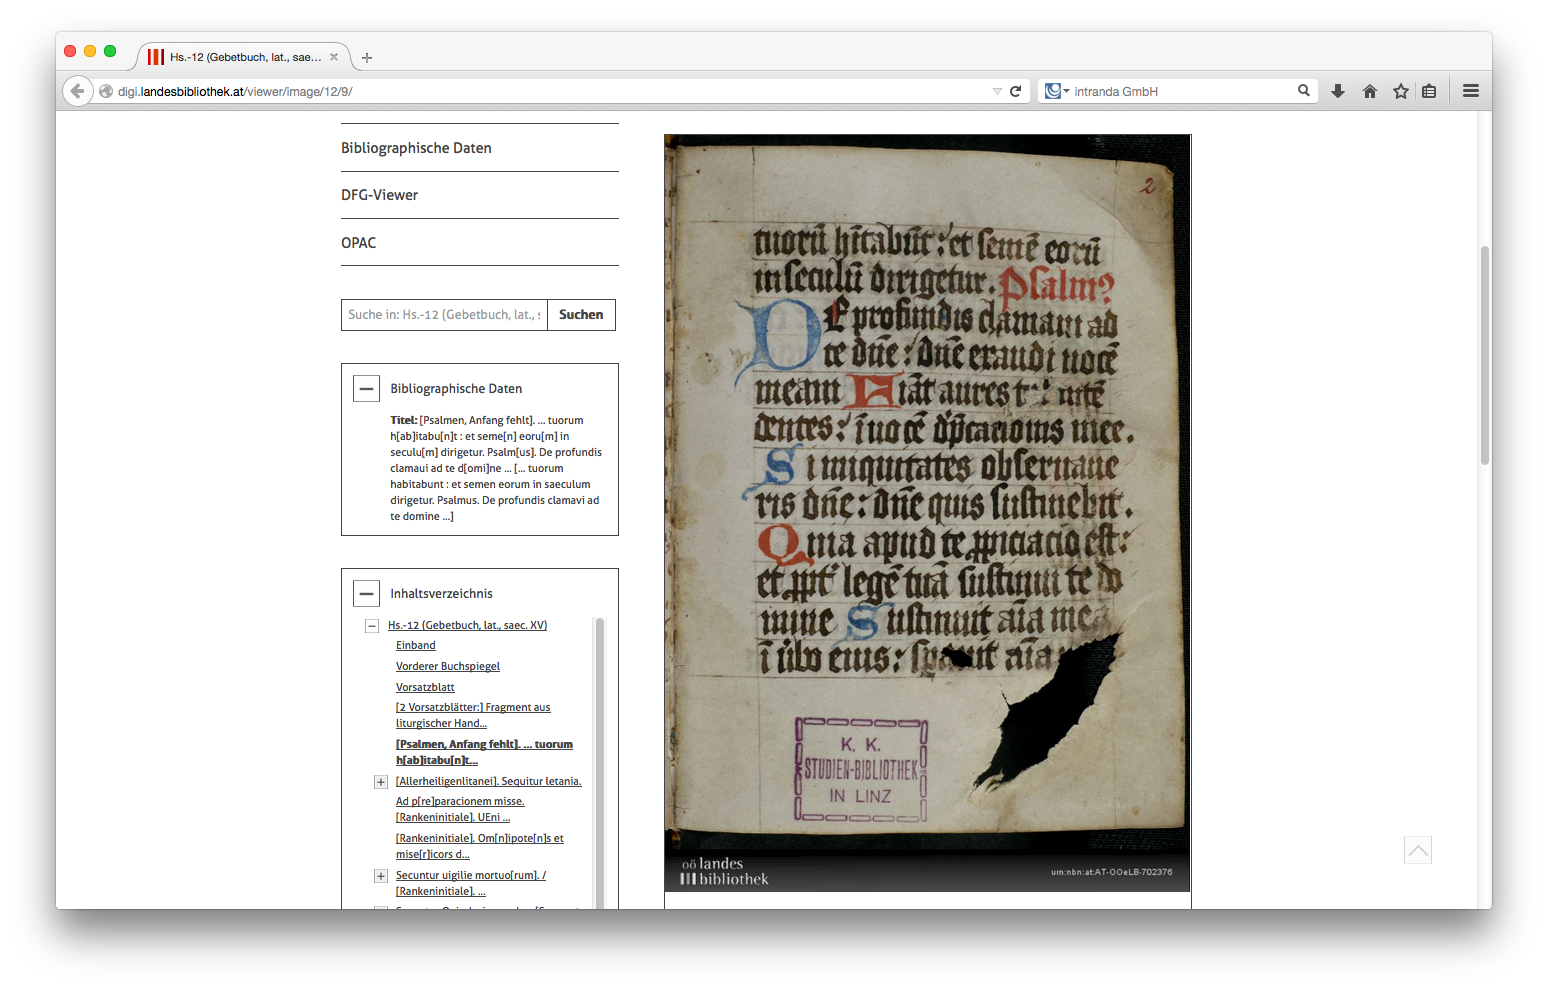 Hs.-12 (Gebetbuch, lat., sae...
digi.landesbibliothek.at/viewer/image/12/9/
intranda GmbH
Bibliographische Daten
DFG-Viewer
OPAC
Suche in: Hs.-12 (Gebetbuch, lat., s
Suchen
Bibliographische Daten
Titel: [Psalmen, Anfang fehlt]. ... tuorum
h[ab]itabu[n]t : et seme[n] eoru[m] in
seculu[m] dirigetur. Psalm[us]. De profundis
clamaui ad te d[omi]ne ... [... tuorum
habitabunt : et semen eorum in saeculum
dirigetur. Psalmus. De profundis clamavi ad
te domine ...]
Inhaltsverzeichnis
Hs.-12 (Gebetbuch, lat., saec. XV)
Einband
Vorderer Buchspiegel
Vorsatzblatt
[2 Vorsatzblätter:] Fragment aus
liturgischer Hand...
[Psalmen, Anfang fehlt]. ... tuorum
h[ab]itabu[n]t...
[Allerheiligenlitanei]. Sequitur letania.
Ad p[re]paracionem misse.
[Rankeninitiale]. UEni ...
[Rankeninitiale]. Om[n]ipote[n]s et
mise[r]icors d...
Secuntur uigilie mortuo[rum]. /
[Rankeninitiale]. ...
2
tuorū hītabūt : et semē eorū
in seculū dirigetur. Psalm
DE profundis clamaui ad
te dn̄e : dn̄e exaudi uocē
meam Fiāt aures intē
dentes : ī uocē dp̄cationis mee.
Si iniquitates obseruaue
ris dn̄e : dn̄e quis sustinebit.
Quia apud te ꝓpiciacio est :
et legē tuā sustinui te do
mine Sustinuit aīa mea
ī ūbo eius : aīa
K. K.
STUDIEN-BIBLIOTHEK
IN LINZ
oö landes
bibliothek
urn:nbn:at:AT-OOeLB-702376